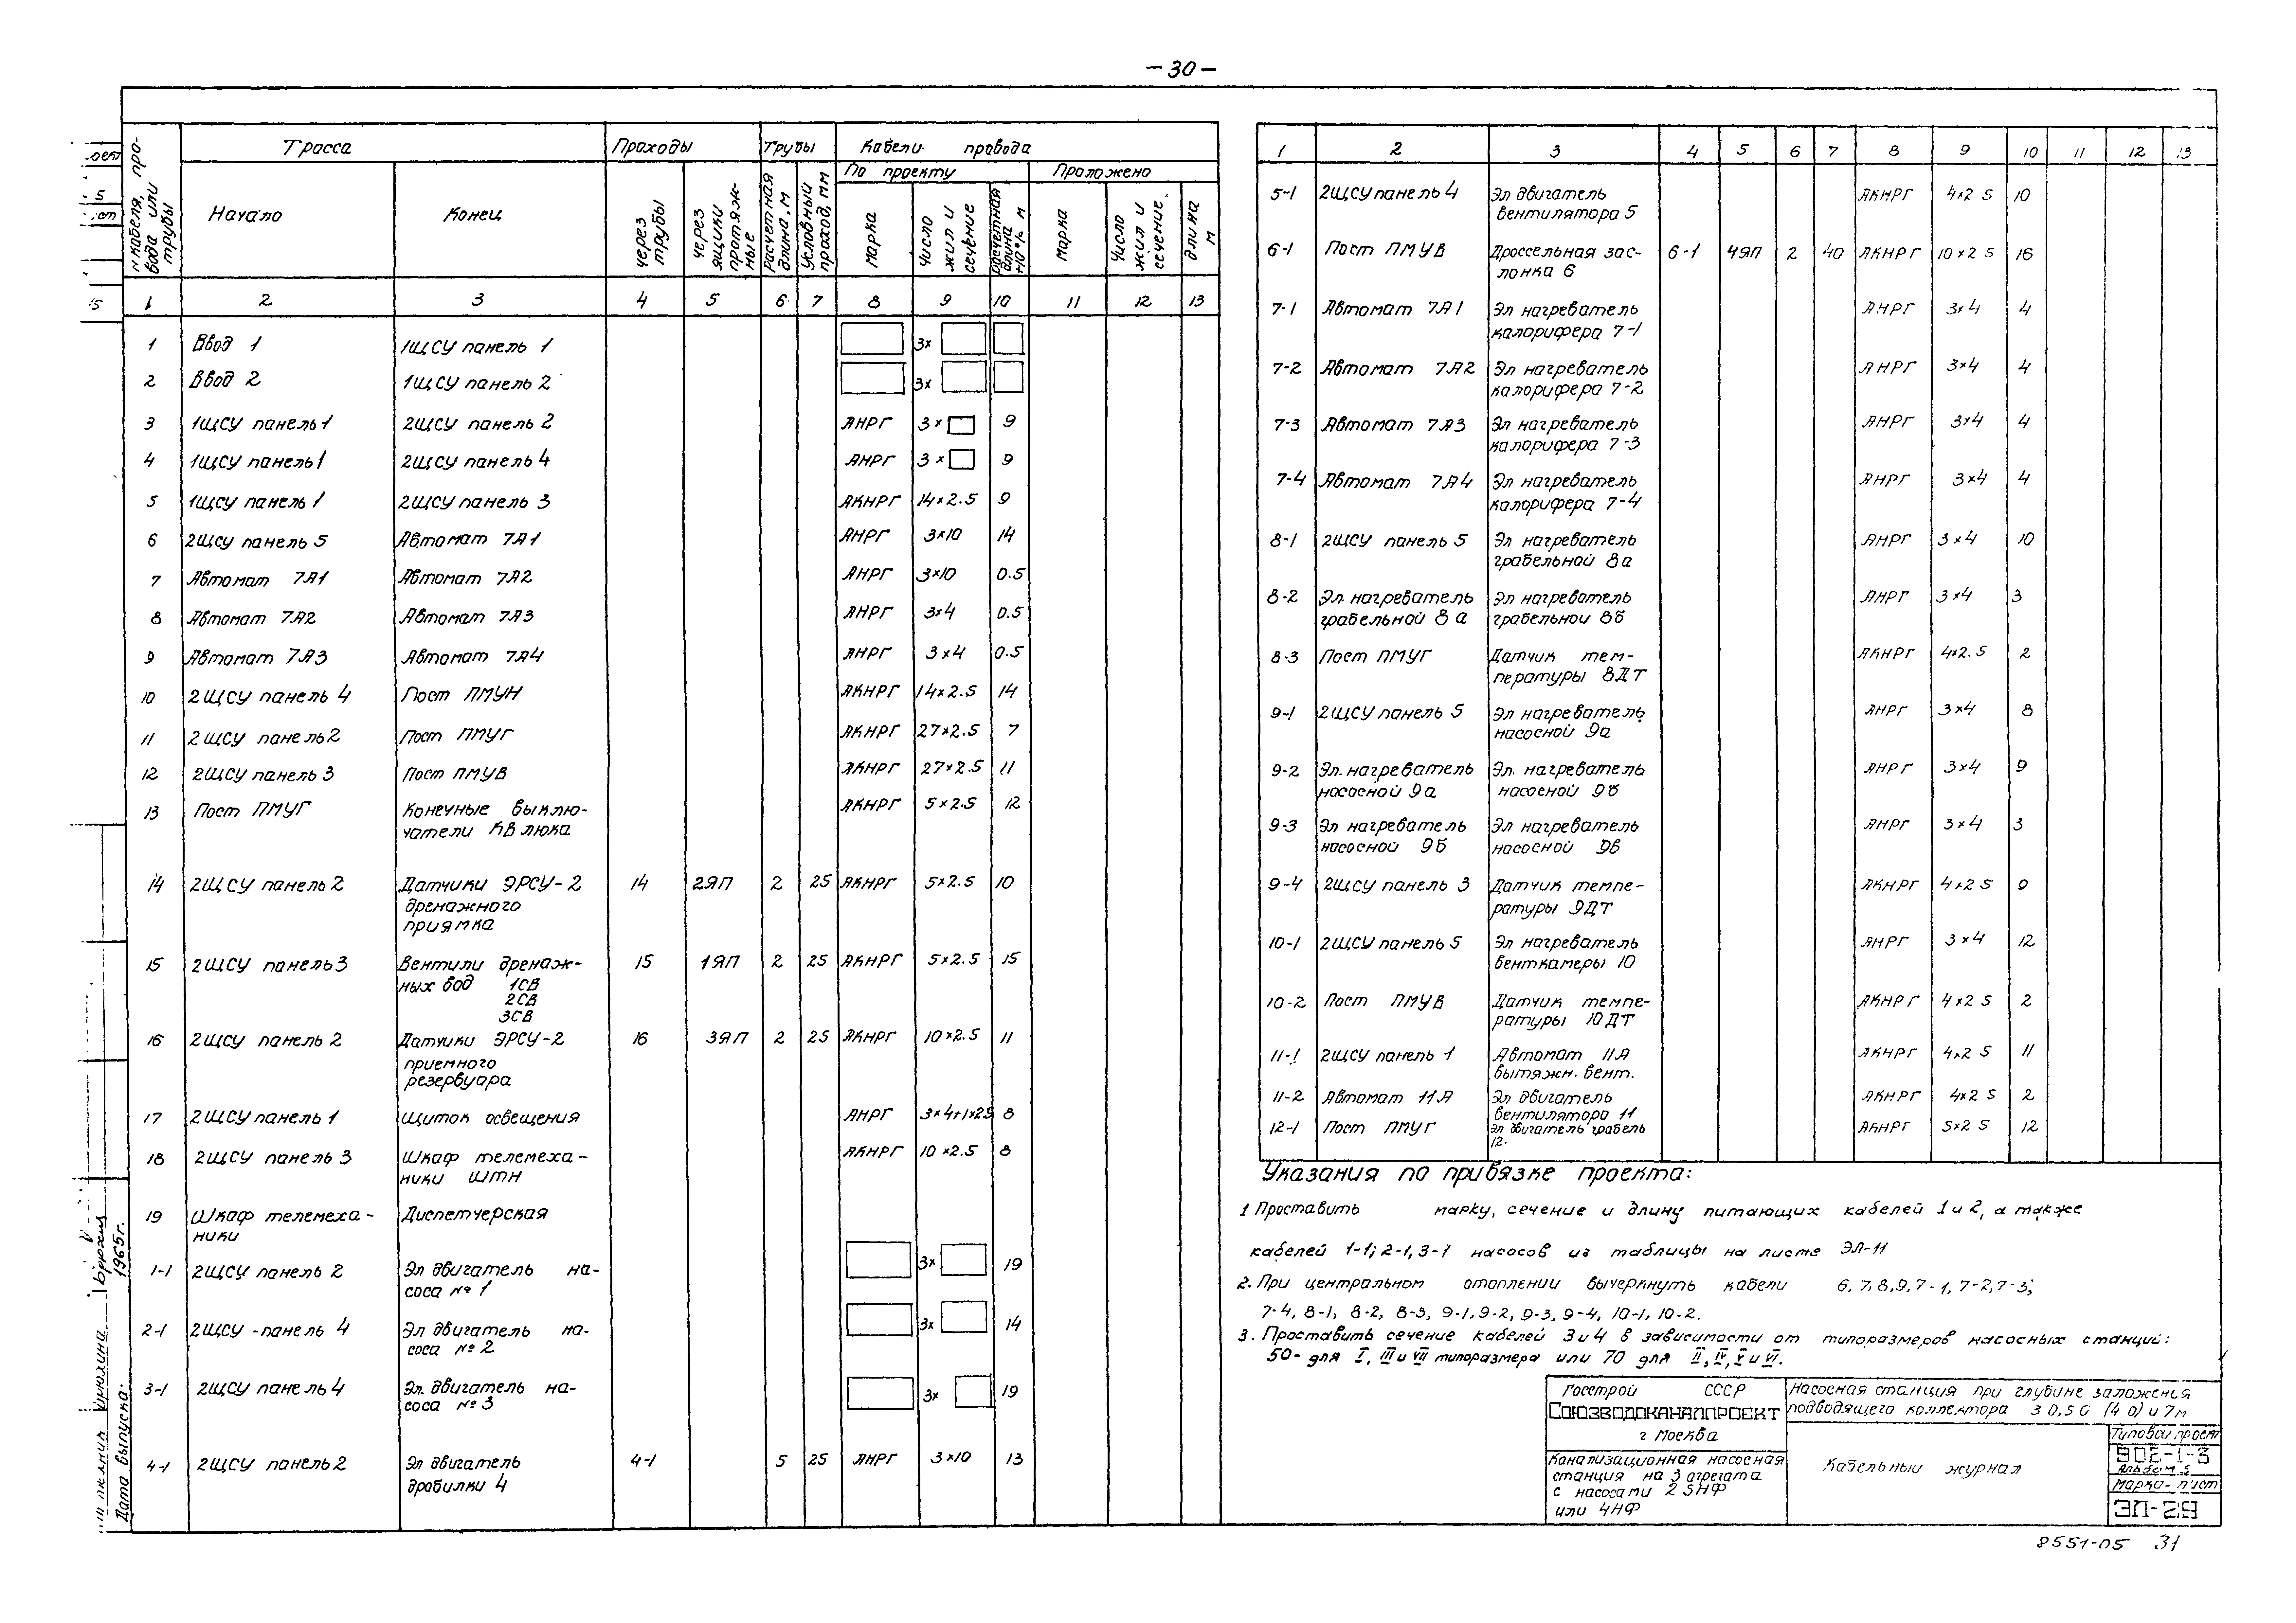 - 30 -
N кабеля, про-
вода или
трубы
Трасса
Проходы
Трубы
Кабели провода
Начало
Конец
через трубы
через ящики протяж-
ные
Расчетная длина, м
Условный проход, мм
По проекту
Проложено
Марка
Число жил и сечение
Расчетная длина +10% м
Марка
Число жил и сечение.
длина м
1 2 3 4 5 6 7 8 9 10 11 12 13
1 Ввод 1 1ЩСУ панель 1 3×
2 Ввод 2 1ЩСУ панель 2 3×
3 1ЩСУ панель 1 2ЩСУ панель 2 АНРГ 3× 9
4 1ЩСУ панель 1 2ЩСУ панель 4 АНРГ 3× 9
5 1ЩСУ панель 1 2ЩСУ панель 3 АКНРГ 14×2.5 9
6 2ЩСУ панель 5 Автомат 7А1 АНРГ 3×10 14
7 Автомат 7А1 Автомат 7А2 АНРГ 3×10 0.5
8 Автомат 7А2 Автомат 7А3 АНРГ 3×4 0.5
9 Автомат 7А3 Автомат 7А4 АНРГ 3×4 0.5
10 2ЩСУ панель 4 Пост ПМУН АКНРГ 14×2.5 14
11 2ЩСУ панель 2 Пост ПМУГ АКНРГ 27×2.5 7
12 2ЩСУ панель 3 Пост ПМУВ АКНРГ 27×2.5 11
13 Пост ПМУГ Конечные выклю- АКНРГ 5×2.5 12
чатели КВ люка
14 2ЩСУ панель 2 Датчики ЭРСУ-2 14 2ЯП 2 25 АКНРГ 5×2.5 10
дренажного
приямка
15 2ЩСУ панель 3 Вентили дренаж- 15 1ЯП 2 25 АКНРГ 5×2.5 15
ных вод 1СВ
2СВ
3СВ
16 2ЩСУ панель 2 Датчики ЭРСУ-2 16 3ЯП 2 25 АКНРГ 10×2.5 11
приемного
резервуара
17 2ЩСУ панель 1 Щиток освещения АНРГ 3×4+1×2.5 8
18 2ЩСУ панель 3 Шкаф телемеха- АКНРГ 10×2.5 8
ники ШТН
19 Шкаф телемеха- Диспетчерская
ники
1-1 2ЩСУ панель 2 Эл двигатель на- 3× 19
соса № 1
2-1 2ЩСУ -панель 4 Эл двигатель на- 3× 14
соса № 2
3-1 2ЩСУ панель 4 Эл. двигатель на- 3× 19
соса № 3
4-1 2ЩСУ панель 2 Эл двигатель 4-1 5 25 АНРГ 3×10 13
дробилки 4
1 2 3 4 5 6 7 8 9 10 11 12 13
5-1 2ЩСУ панель 4 Эл двигатель АКНРГ 4×2 5 10
вентилятора 5
6-1 Пост ПМУВ Дроссельная зас- 6-1 4ЯП 2 40 АКНРГ 10×2 5 16
лонка 6
7-1 Автомат 7А1 Эл нагреватель АНРГ 3×4 4
калорифера 7-1
7-2 Автомат 7А2 Эл нагреватель АНРГ 3×4 4
калорифера 7-2
7-3 Автомат 7А3 Эл нагреватель АНРГ 3×4 4
калорифера 7-3
7-4 Автомат 7А4 Эл нагреватель АНРГ 3×4 4
калорифера 7-4
8-1 2ЩСУ панель 5 Эл нагреватель АНРГ 3×4 10
грабельной 8а
8-2 Эл. нагреватель Эл нагреватель АНРГ 3×4 3
грабельной 8а грабельной 8б
8-3 Пост ПМУГ Датчик тем- АКНРГ 4×2.5 2
пературы 8ДТ
9-1 2ЩСУ панель 5 Эл нагреватель АНРГ 3×4 8
насосной 9а
9-2 Эл. нагреватель Эл. нагреватель АНРГ 3×4 9
насосной 9а насосной 9б
9-3 Эл нагреватель Эл нагреватель АНРГ 3×4 3
насосной 9б насосной 9в
9-4 2ЩСУ панель 3 Датчик темпе- АКНРГ 4×2 5
ратуры 9ДТ
10-1 2ЩСУ панель 5 Эл нагреватель АНРГ 3×4 12
венткамеры 10
10-2 Пост ПМУВ Датчик темпе- АКНРГ 4×2 5 2
ратуры 10ДТ
11-1 2ЩСУ панель 1 Автомат 11А АКНРГ 4×2 5 11
вытяжн. вент.
11-2 Автомат 11А Эл двигатель АКНРГ 4×2 5 2
вентилятора 11
12-1 Пост ПМУГ Эл двигатель грабель АКНРГ 5×2 5 12
12.
Указания по привязке проекта:
1 Проставить марку, сечение и длину питающих кабелей 1 и 2, а также
кабелей 1-1; 2-1, 3-1 насосов из таблицы на листе ЭЛ-11
2. При центральном отоплении вычеркнуть кабели 6, 7, 8, 9, 7-1, 7-2, 7-3;
7-4, 8-1, 8-2, 8-3, 9-1, 9-2, 9-3, 9-4, 10-1, 10-2.
3. Проставить сечение кабелей 3 и 4 в зависимости от типоразмеров насосных станций:
50- для I, III и VII типоразмера или 70 для II, IV, V и VI.
Госстрой СССР
СОЮЗВОДОКАНАЛПРОЕКТ
г Москва
Насосная станция при глубине заложения
подводящего коллектора 3 0, 5 0 (4 0) и 7м
Канализационная насосная
станция на 3 агрегата
с насосами 2 5НФ
или 4НФ
Кабельный журнал
Типовой проект
902-1-3
Альбом 5
Марка-лист
ЭЛ-29
8551-05 31
Дата выпуска. 1965г.